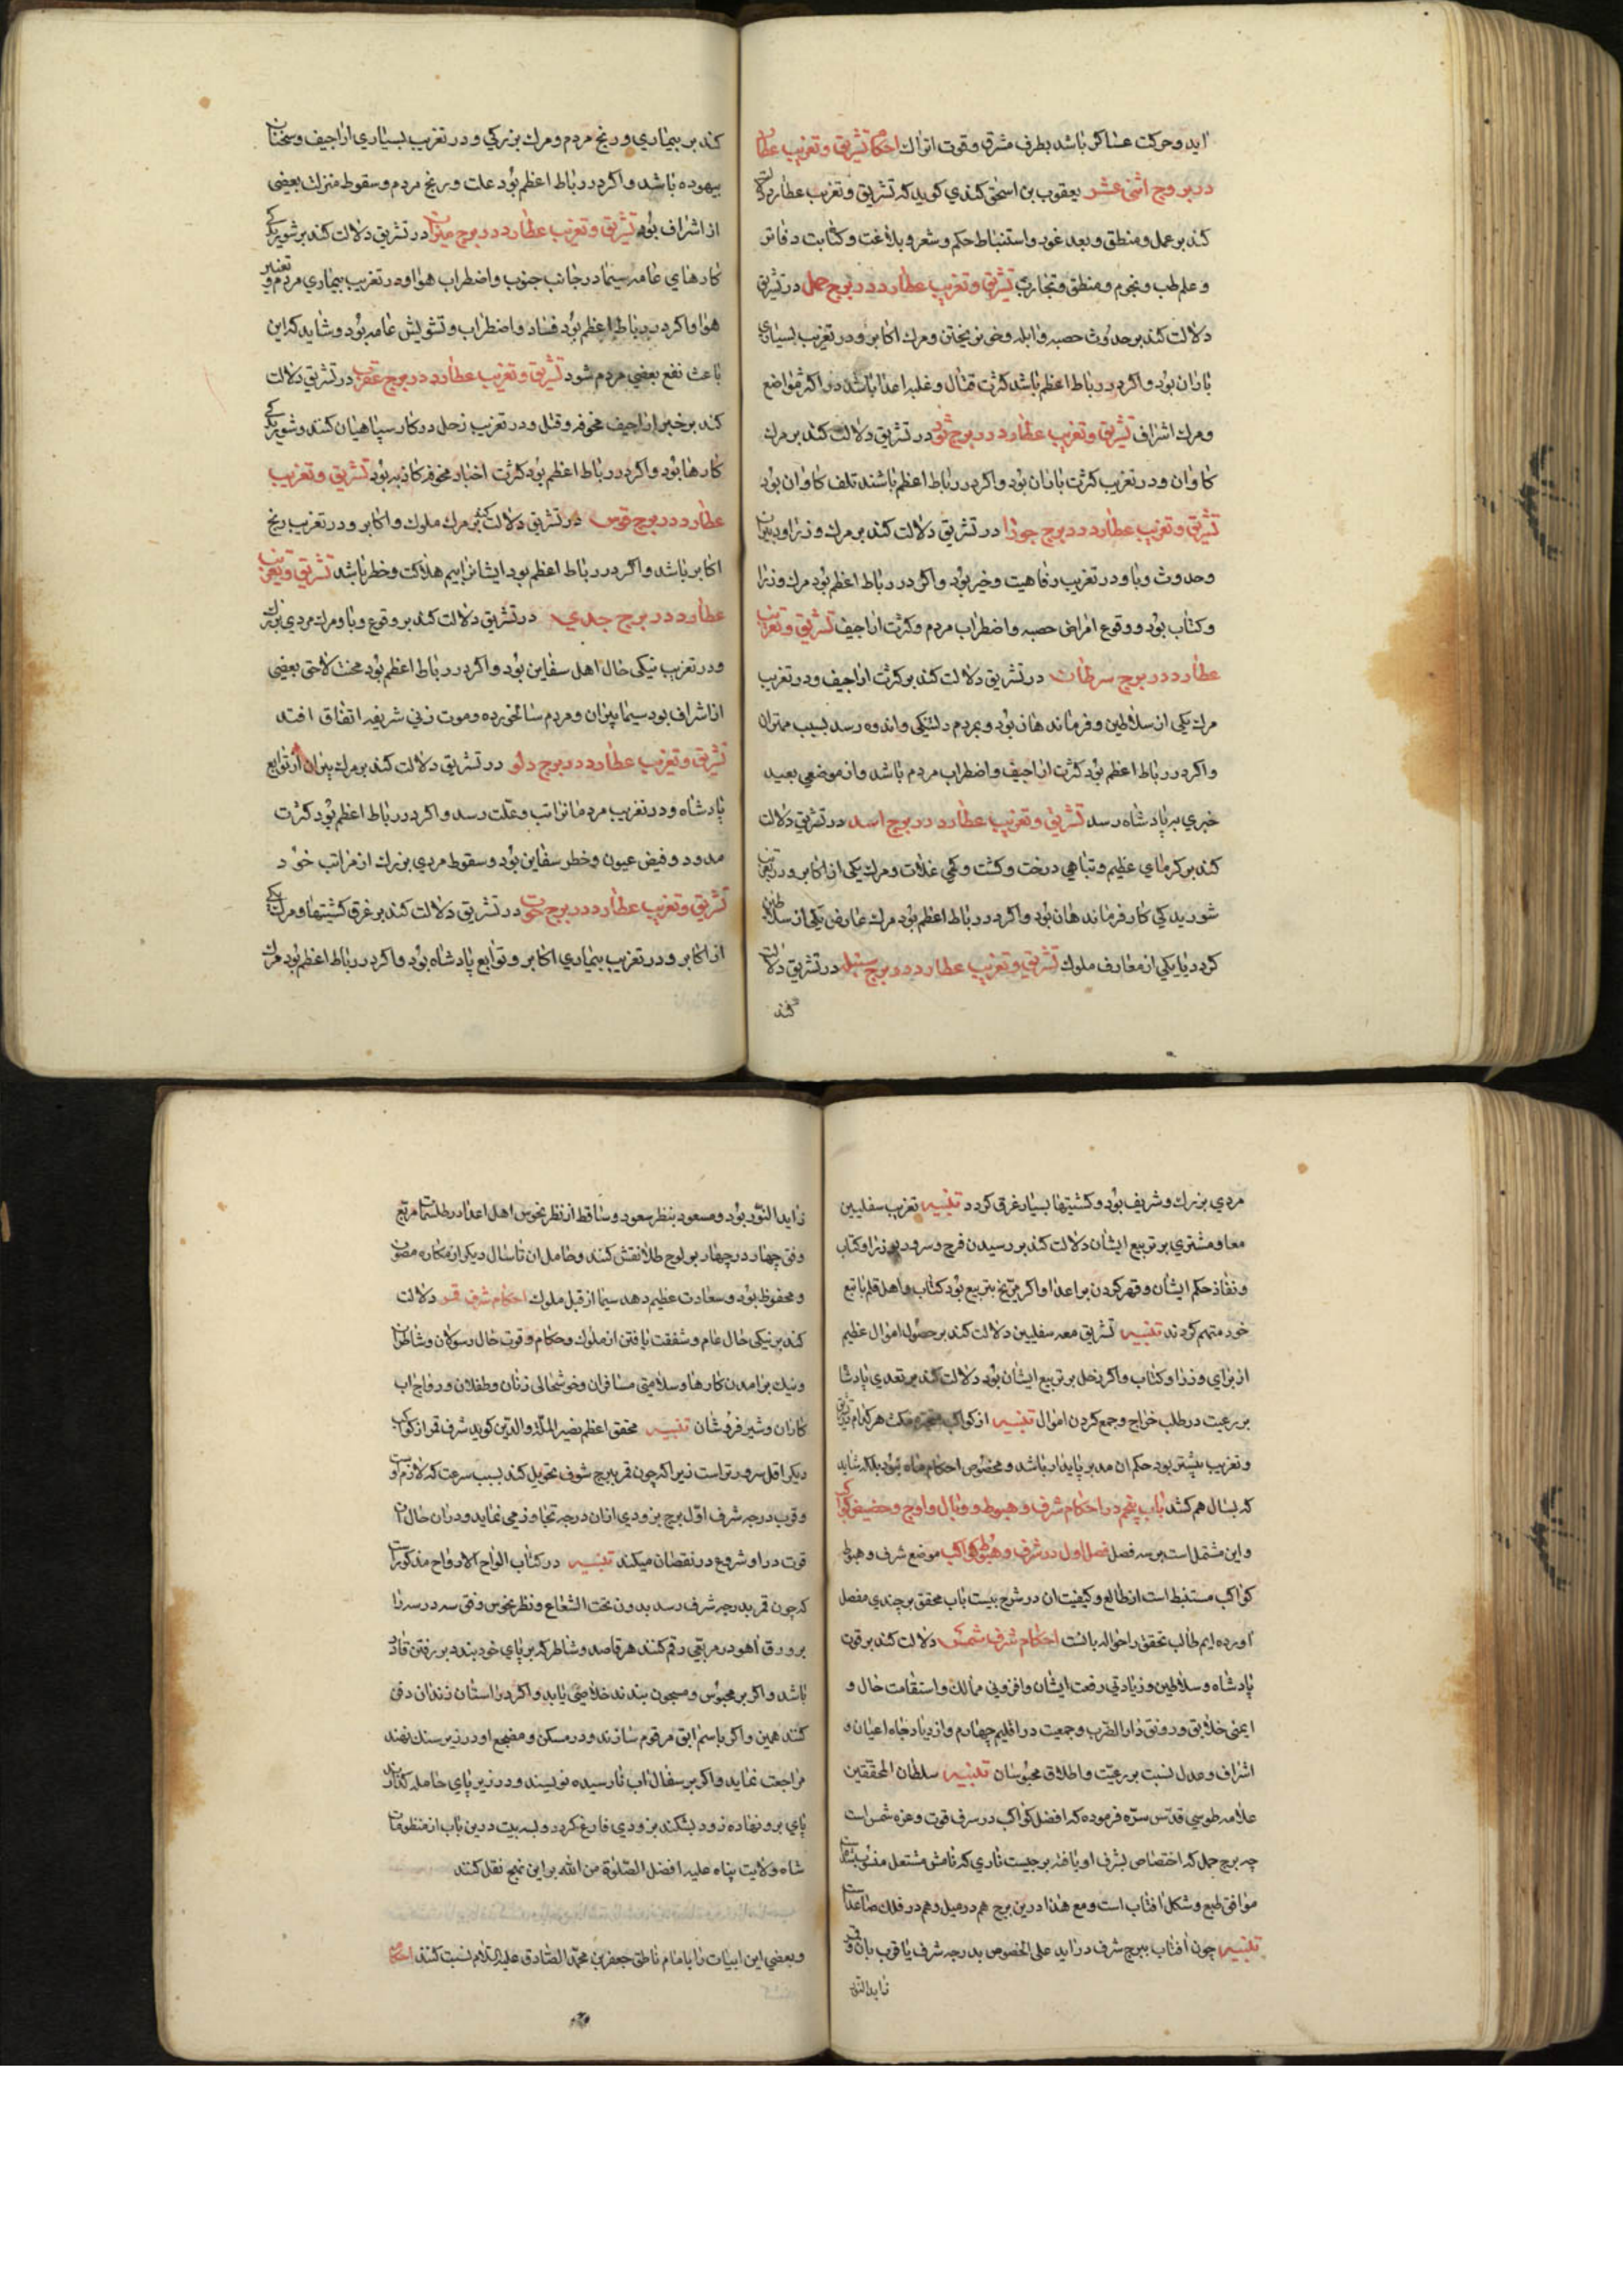 آید و حرکت عساکر باشد بطرف مشرق و قوت اتراك احکام تشریق و تغریب عطارد
در بروج اثنی عشر یعقوب بن اسحق کندی کوید که تشریق و تغریب عطارد دلالت
کند بر عمل و منطق و بعد غور و استنباط حکم و شعر و بلاغت و کتابت دفاتر
و علم طب و نجوم و منطق و تجارت تشریق و تغریب عطارد در برج حمل در تشریق
دلالت کند بر حدوث حصبه و ابله و خون ریختن و مرك اکابر و در تغریب بسیاری
باران بود و اکر در رباط اعظم باشد کثرت قتال و غلبه اعدا باشد در اکثر مواضع
و مرك اشراف تشریق و تغریب عطارد در برج ثور در تشریق دلالت کند بر مرك
کاوان و در تغریب کثرت باران بود و اکر در رباط اعظم باشند تلف کاوان بود
تشریق و تغریب عطارد در برج جوزا در تشریق دلالت کند بر مرك وزرا و دبیران
و حدوث وبا و در تغریب رفاهیت و خیر بود و اکر در رباط اعظم بود مرك وزرا
و کتاب بود و وقوع امراض حصبه و اضطراب مردم و کثرت اراجیف تشریق و تغریب
عطارد در برج سرطان در تشریق دلالت کند بر کثرت اراجیف و در تغریب
مرك یکی از سلاطین و فرماندهان بود و بمردم دلتنکی و اندوه رسد بسبب مهتران
و اکر در رباط اعظم بود کثرت اراجیف و اضطراب مردم باشد و از موضعی بعید
خبری بپادشاه رسد تشریق و تغریب عطارد در برج اسد در تشریق دلالت
کند بر کرمای عظیم و تباهی درخت و کشت و کمی غلات و مرك یکی از اکابر و در تغریب
شوریدکی کار فرماندهان بود و اکر در رباط اعظم بود مرك عارض یکی از سلاطین
کردد یا یکی از معارف ملوك تشریق و تغریب عطارد در برج سنبله در تشریق دلالت
کند
کند بر بیماری و رنج مردم و مرك بزرکی و در تغریب بسیاری اراجیف و سخنان
بیهوده باشد و اکر در رباط اعظم بود علت و رنج مردم و سقوط منزلت بعضی
از اشراف بود تشریق و تغریب عطارد در برج میزان در تشریق دلالت کند بر شوریدکی
کارهای عامه سیما در جانب جنوب و اضطراب هوا و در تغریب بیماری مردم و تغییر
هوا و اکر در رباط اعظم بود فساد و اضطراب و تشویش عامه بود و شاید که این
باعث نفع بعضی مردم شود تشریق و تغریب عطارد در برج عقرب در تشریق دلالت
کند بر خبر اراجیف مخوفه و قتل و در تغریب زحل در کار سپاهیان کنند و شوریدکی
کارها بود و اکر در رباط اعظم بود کثرت اخبار مخوفه کاذبه بود تشریق و تغریب
عطارد در برج قوس در تشریق دلالت کند بر مرك ملوك و اکابر و در تغریب رنج
اکابر باشد و اکر در رباط اعظم بود ایشانرا بیم هلاکت و خطر باشد تشریق و تغریب
عطارد در برج جدی در تشریق دلالت کند بر وقوع وبا و مرك مردی بزرك
و در تغریب نیکی حال اهل سفاین بود و اکر در رباط اعظم بود محنت لاحق بعضی
از اشراف بود سیما پیران و مردم سالخورده و موت زنی شریفه اتفاق افتد
تشریق و تغریب عطارد در برج دلو در تشریق دلالت کند بر مرك پیران از توابع
پادشاه و در تغریب مردمانرا تب و علت رسد و اکر در رباط اعظم بود کثرت
مدود و فیض عیون و خطر سفاین بود و سقوط مردی بزرك از مراتب خود
تشریق و تغریب عطارد در برج حوت در تشریق دلالت کند بر غرق کشتیها و مرك یکی
از اکابر و در تغریب بیماری اکابر و توابع پادشاه بود و اکر در رباط اعظم بود مرك
مردی بزرك و شریف بود و کشتیها بسیار غرق کردد تنبیه تغریب سفلیین
معا و مشتری بر تربیع ایشان دلالت کند بر رسیدن فرح و سرور بوزرا و کتاب
و نفاذ حکم ایشان و قهر کردن بر اعدا و اکر مریخ بتربیع بود کتاب و اهل قلم باتبع
خود متهم کردند تنبیه تشریق معه سفلیین دلالت کند بر حصول اموال عظیم
از برای وزرا و کتاب و اکر زحل بر تربیع ایشان بود دلالت کند بر تعدی پادشا
بر رعیت در طلب خراج و جمع کردن اموال تنبیه از کواکب متحیره مکث هر کدام
و تغریب بیشتر بود حکم ان مدبر پایدار باشد و مخصوص احکام ماه نبود بلکه شاید
که بسال هم کشد باب پنجم در احکام شرف و هبوط و وبال و اوج و حضیض کواکب
و این مشتمل است بر سه فصل فصل اول در شرف و هبوط کواکب موضع شرف و هبوط
کواکب مستنبط است از طالع و کیفیت ان در شرح بیست باب محقق برجندی مفصل
آورده ایم طالب تحقق را حواله بانست احکام شرف شمس دلالت کند بر قوت
پادشاه و سلاطین و زیادتی رفعت ایشان و افزونی ممالك و استقامت حال و
ایمنی خلایق و رونق دار الضرب و جمعیت در اقلیم چهارم و ازدیاد جاه اعیان و
اشراف و عدل نسبت بر رعیت و اطلاق محبوسان تنبیه سلطان المحققین
علامه طوسی قدس سره فرموده که افضل کواکب در شرف قوت و عزه شمس است
چه برج حمل که اختصاص بشرف او یافته برجیست ناری که نامش مشتعل
موافق طبع و شکل آفتاب است و مع هذا درین برج هم در میل و هم در فلك صاعد است
تنبیه چون آفتاب ببرج شرف در اید علی الخصوص بدرجه شرف یا قرب بان و قمر
زاید النور
زاید النور بود و مسعود بنظر سعود و ساقط از نظر نحوس اهل اعداد و طلسمات مربع
وفق چهار در چهار بر لوح طلا نقش کنند و حامل ان تا سال دیکر از مکاره مصون
و محفوظ بود و سعادت عظیم دهد سیما از قبل ملوك احکام شرف قمر دلالت
کند بر نیکی حال عام و شفقت یافتن از ملوك و حکام و قوت حال رسولان و شاطران
و نیك برامدن کارها و سلامتی مسافران و خوشحالی زنان و طفلان و رواج اب
کاران و شیر فروشان تنبیه محقق اعظم نصیر الملة والدین کوید شرف قمر از کواکب
دیکر اقل سرورتر است زیرا که چون قمر ببرج شرف تحویل کند بسبب سرعت که لازم اوست
و قرب درجه شرف اول برج بزودی ازان درجه تجاوز می نماید و دران حال
قوت در او شروع در نقصان میکند تنبیه در کتاب الواح الارواح مذکور است
که چون قمر بدرجه شرف رسد بدون تحت الشعاع و نظر نحوس وفق سه در سه را
بر ورق آهو در مربعی رقم کنند هر قاصد و شاطر که بر پای خود بندد بر رفتن قادر
باشد و اکر بر محبوس و مسجون بندند خلاصی یابد و اکر در استان زندان دفن
کنند همین و اکر باسم ابق مرقوم سازند و در مسکن و مضجع او در زیر سنك نهند
مراجعت نماید و اکر بر سفال اب نارسیده نویسند و در زیر پای حامله کذارند
پای برو نهاده زود بشکند بزودی فارغ کردد و سه بیت درین باب از منظومات
شاه ولایت پناه علیه افضل الصلوة من الله بر این نهج نقل کنند
و بعضی این ابیات را بامام ناطق جعفر بن محمد الصادق علیه السلام نسبت کنند احکام